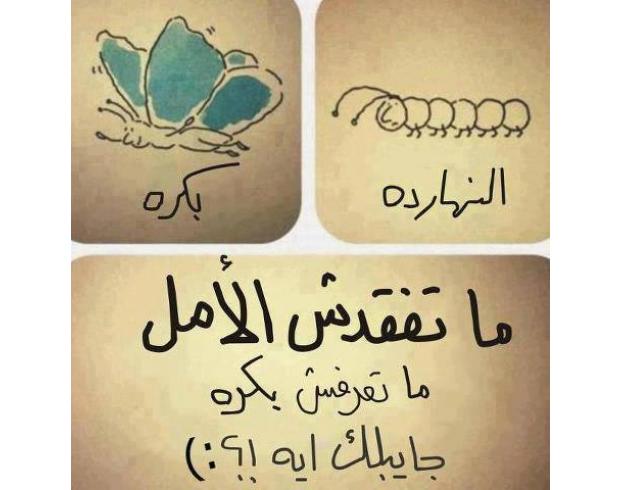 النهارده
بكره
ما تفقدش الأمل
ما تعرفش بكره
جايبلك ايه !؟ :)